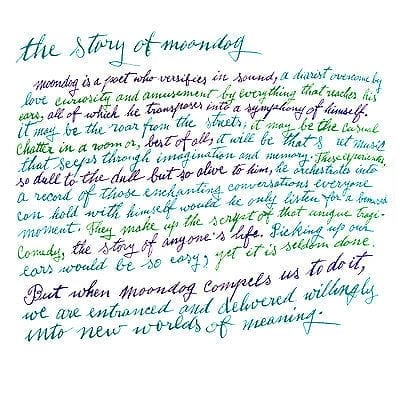 the story of moondog
moondog is a poet who versifies in sound, a diarist overcome by
love curiosity and amusement by everything that reaches his
ears, all of which he transposes into a symphony of himself.
it may be the roar from the streets, it may be the casual
chatter in a room or, best of all, it will be that s ret music
that seeps through imagination and memory. These experiences,
so dull to the dull but so alive to him, he orchestrates into
a record of those enchanting conversations everyone
can hold with himself would he only listen for a bemused
moment. They make up the script of that unique tragi-
comedy, the story of anyone's life. Picking up our
ears would be so easy, yet it is seldom done.
But when moondog compels us to do it,
we are entranced and delivered willingly
into new worlds of meaning.